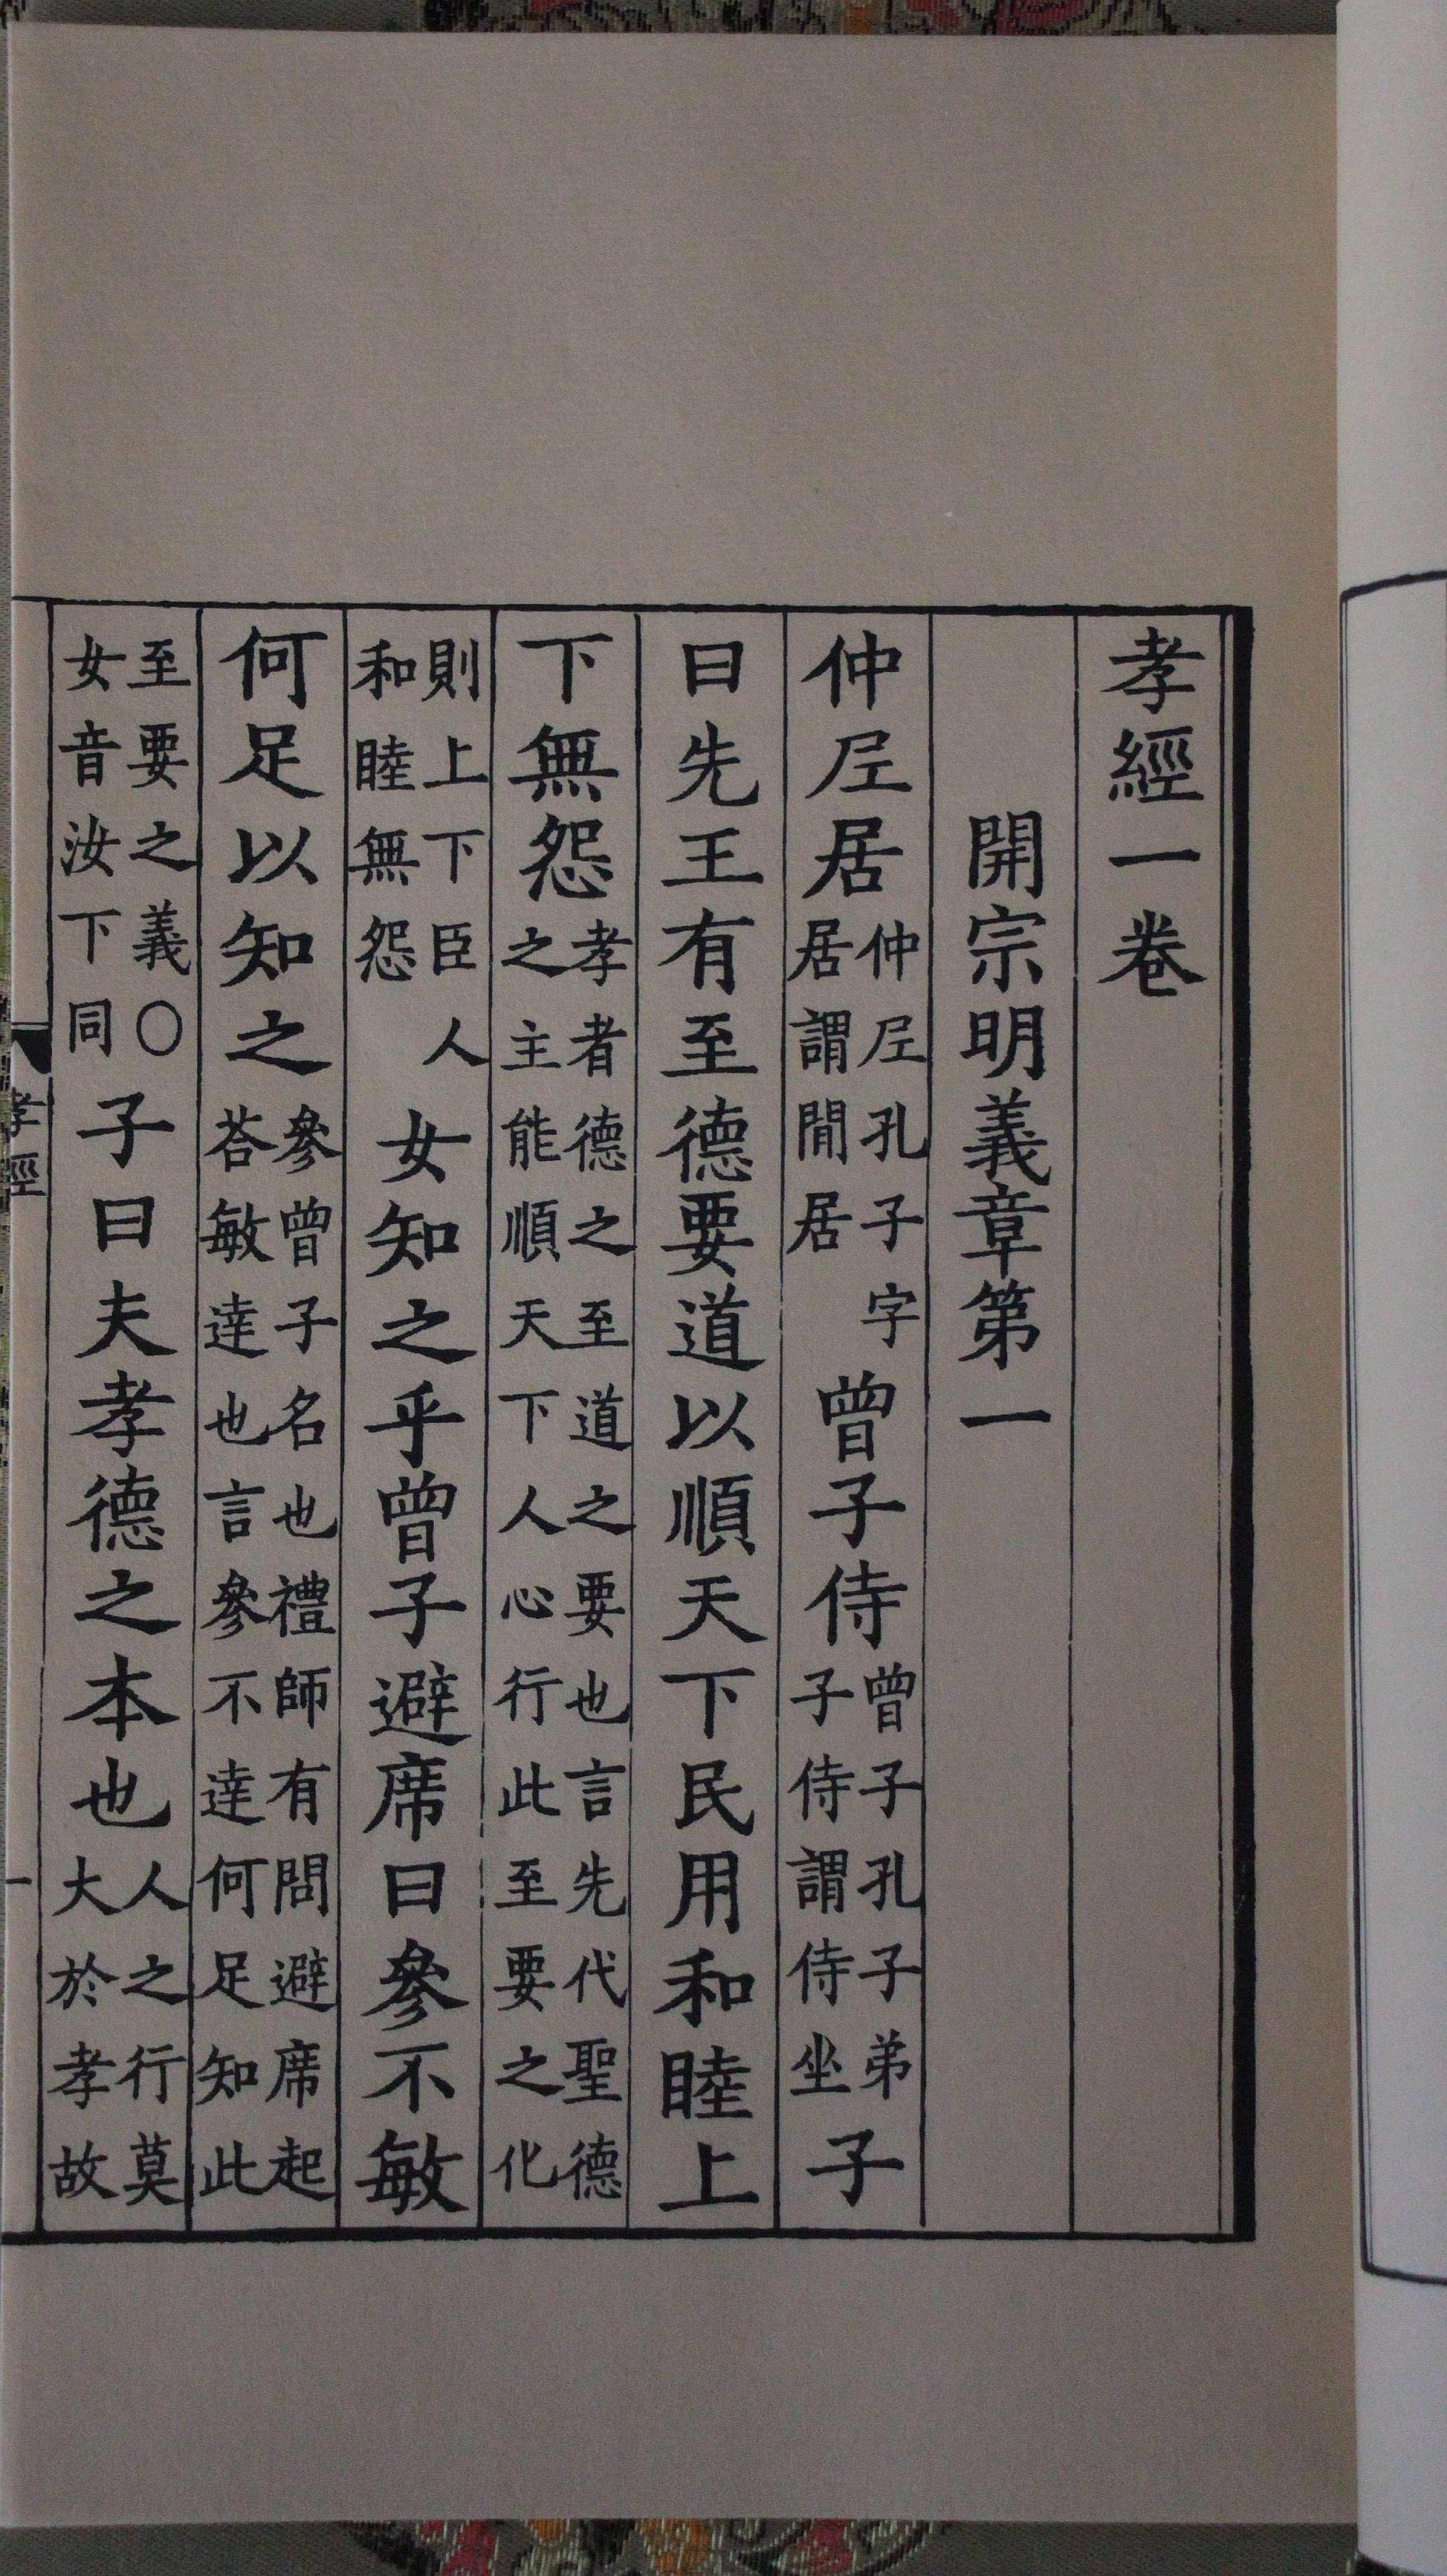 孝經一卷
開宗明義章第一
仲𡰥居仲𡰥孔子字居謂閒居曾子侍曾子孔子弟子侍謂侍坐子
曰先王有至德要道以順天下民用和睦上
下無怨孝者德之至道之要也言先代聖德之主能順天下人心行此至要之化
則上下臣人和睦無怨女知之乎曾子避席曰參不敏
何足以知之參曾子名也禮師有問避席起荅敏達也言參不達何足知此
至要之義○女音汝下同子曰夫孝德之本也人之行莫大於孝故
孝經
一